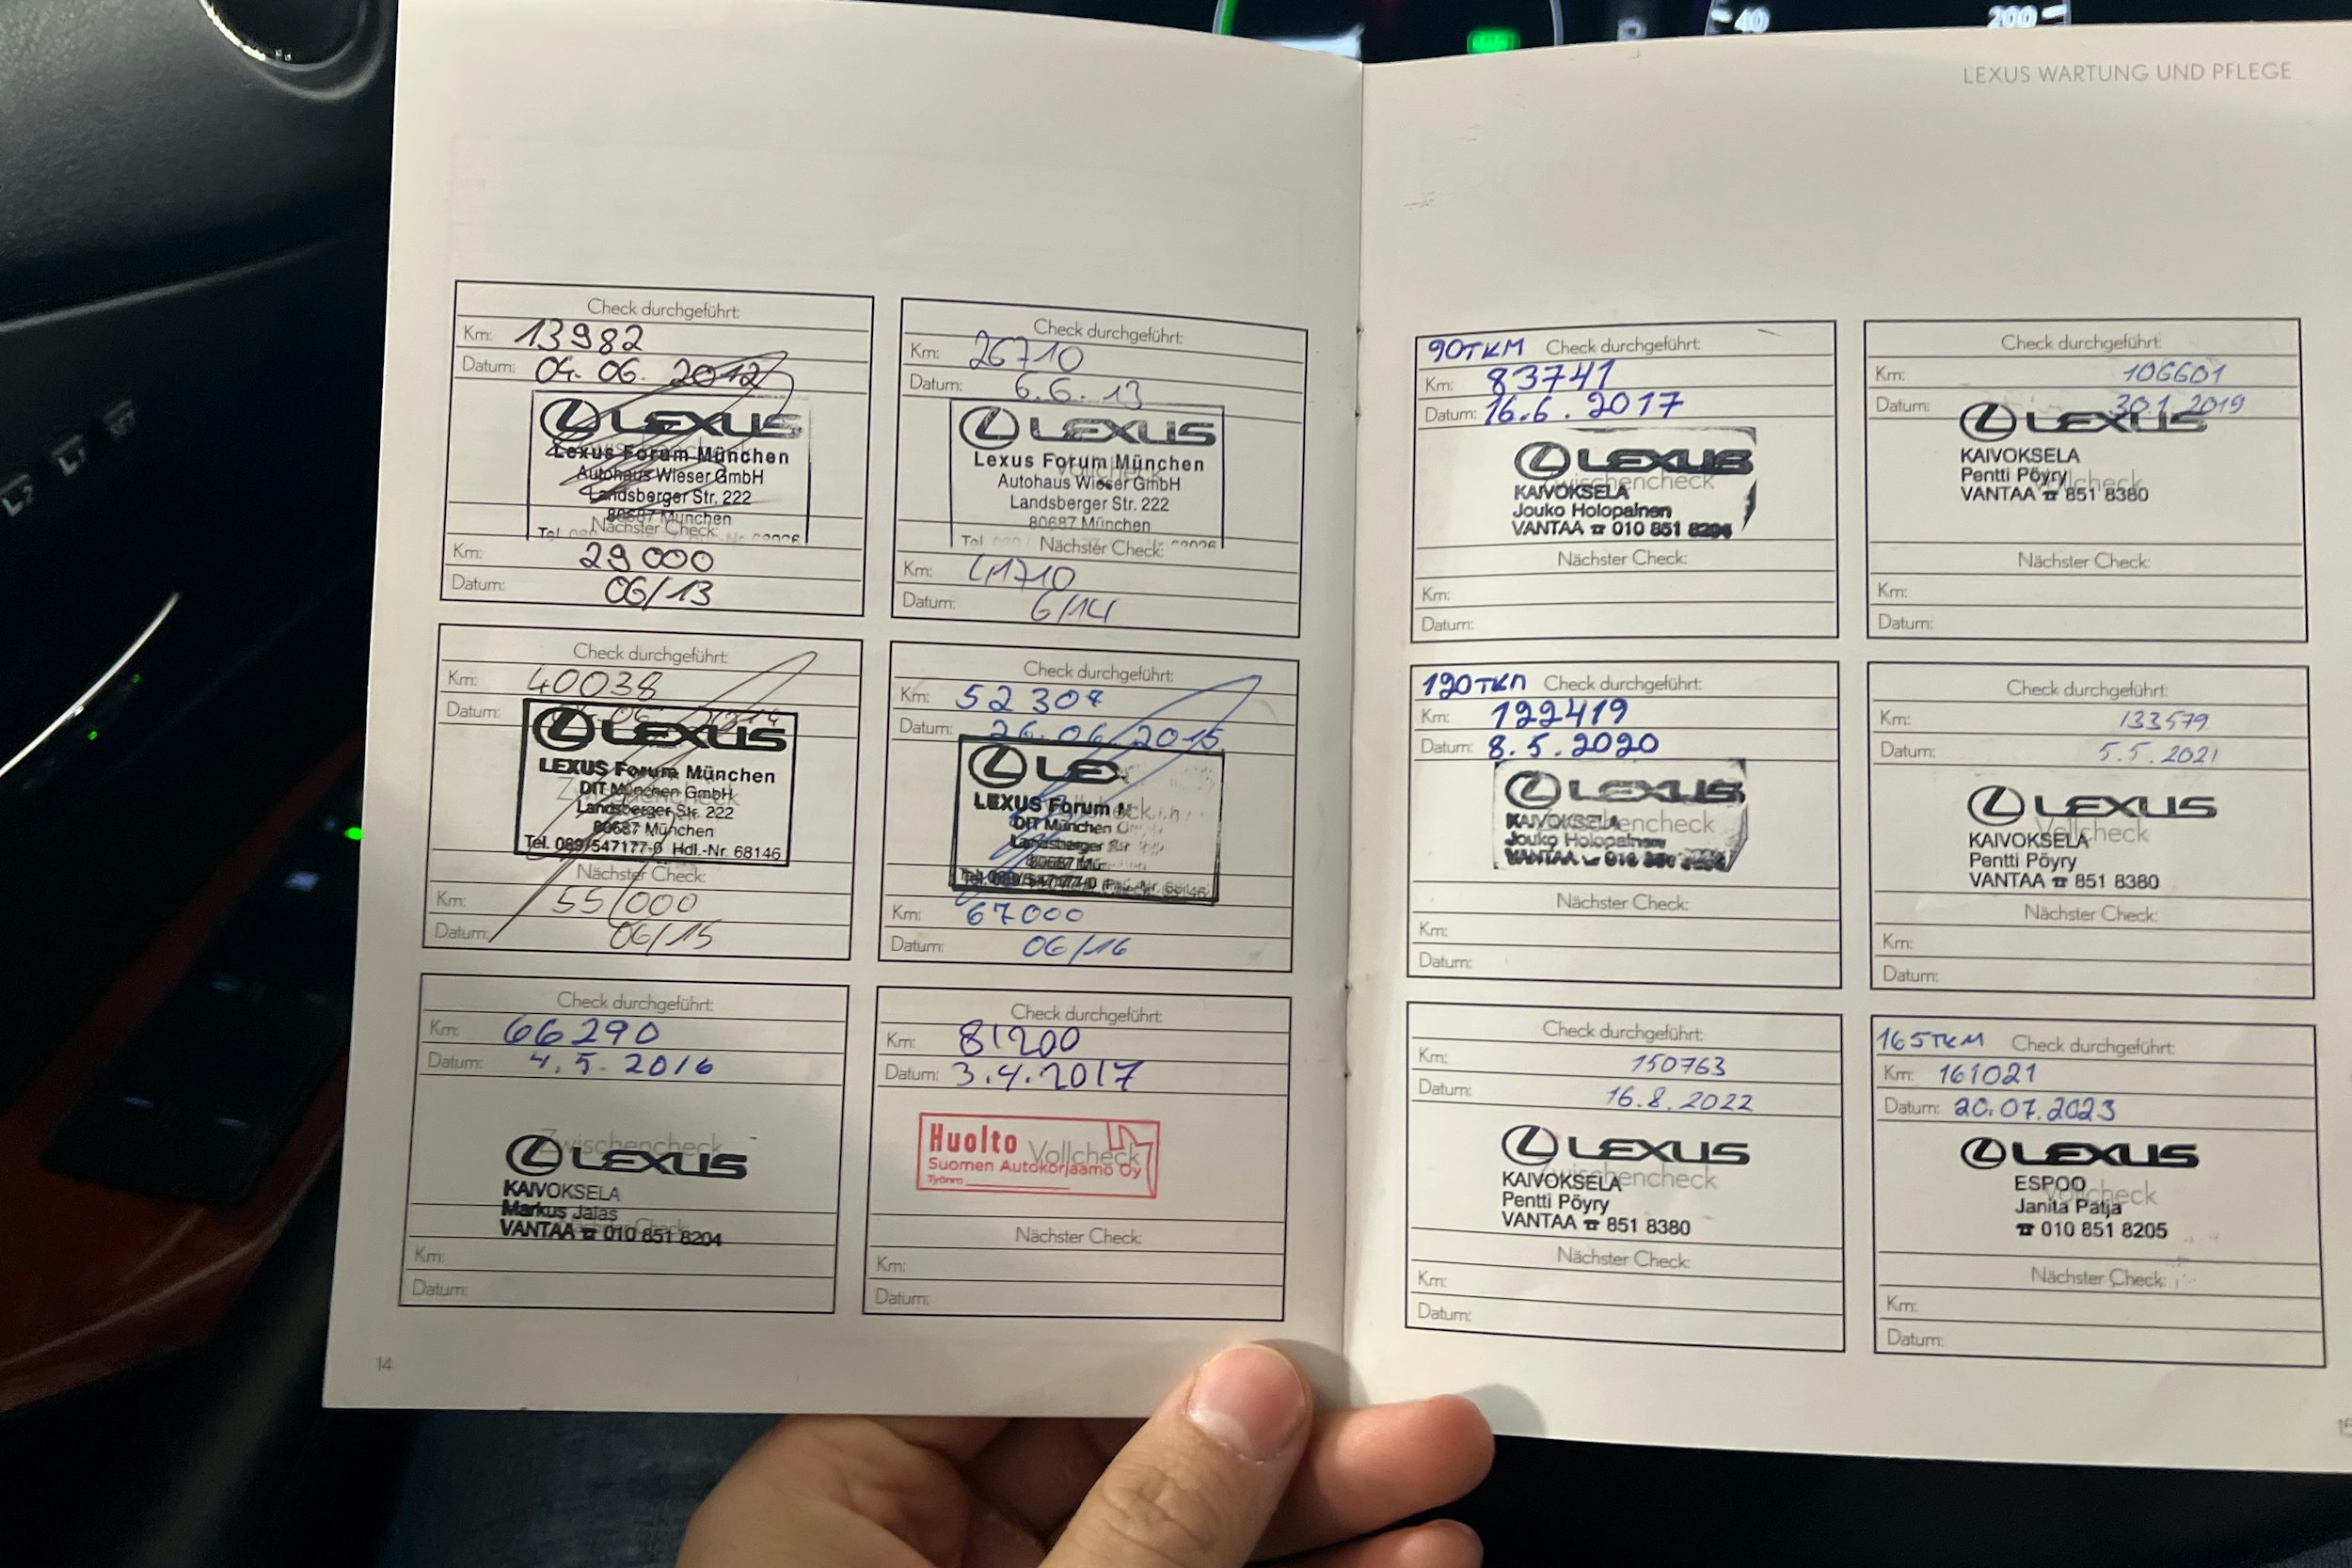 40
200
LEXUS WARTUNG UND PFLEGE
Check durchgeführt:
Km: 13982
Datum: 04.06.2012
LEXUS
Zwischencheck
Lexus Forum München
Autohaus Wieser GmbH
Landsberger Str. 222
80687 München
Nächster Check:
Km: 29000
Datum: 06/13
Check durchgeführt:
Km: 26710
Datum: 6.6.13
LEXUS
Lexus Forum München
Vollcheck
Autohaus Wieser GmbH
Landsberger Str. 222
80687 München
Nächster Check:
Km: 41710
Datum: 6/14
Check durchgeführt:
Km: 40038
Datum: 06
LEXUS
LEXUS Forum München
Zwischencheck
DIT München GmbH
Landsberger Str. 222
80687 München
Tel. 089/547177-0 Hdl.-Nr. 68146
Nächster Check:
Km: 55000
Datum: 06/15
Check durchgeführt:
Km: 52307
Datum: 26.06.2015
LE
LEXUS Forum M
DIT München
Landsberger Str
80687 Mün
Tel. 089/547177-0
Km: 67000
Datum: 06/16
Check durchgeführt:
Km: 66290
Datum: 4.5.2016
Zwischencheck
LEXUS
KAIVOKSELA
Markus Jalas
VANTAA ☎ 010 851 8204
Nächster Check:
Km:
Datum:
Check durchgeführt:
Km: 81200
Datum: 3.4.2017
Huolto
Vollcheck
Suomen Autokorjaamo Oy
Työnro
Nächster Check:
Km:
Datum:
14
90TKM Check durchgeführt:
Km: 83741
Datum: 16.6.2017
LEXUS
Zwischencheck
KAIVOKSELA
Jouko Holopainen
VANTAA ☎ 010 851 8204
Nächster Check:
Km:
Datum:
Check durchgeführt:
Km: 106601
Datum: 30.1.2019
LEXUS
KAIVOKSELA
Pentti Pöyry
Vollcheck
VANTAA ☎ 851 8380
Nächster Check:
Km:
Datum:
120TKM Check durchgeführt:
Km: 122419
Datum: 8.5.2020
LEXUS
Zwischencheck
KAIVOKSELA
Jouko Holopainen
VANTAA
Nächster Check:
Km:
Datum:
Check durchgeführt:
Km: 133579
Datum: 5.5.2021
LEXUS
Vollcheck
KAIVOKSELA
Pentti Pöyry
VANTAA ☎ 851 8380
Nächster Check:
Km:
Datum:
Check durchgeführt:
Km: 150763
Datum: 16.8.2022
LEXUS
Zwischencheck
KAIVOKSELA
Pentti Pöyry
VANTAA ☎ 851 8380
Nächster Check:
Km:
Datum:
165TKM Check durchgeführt:
Km: 161021
Datum: 20.07.2023
LEXUS
ESPOO
Vollcheck
Janita Patja
☎ 010 851 8205
Nächster Check:
Km:
Datum: